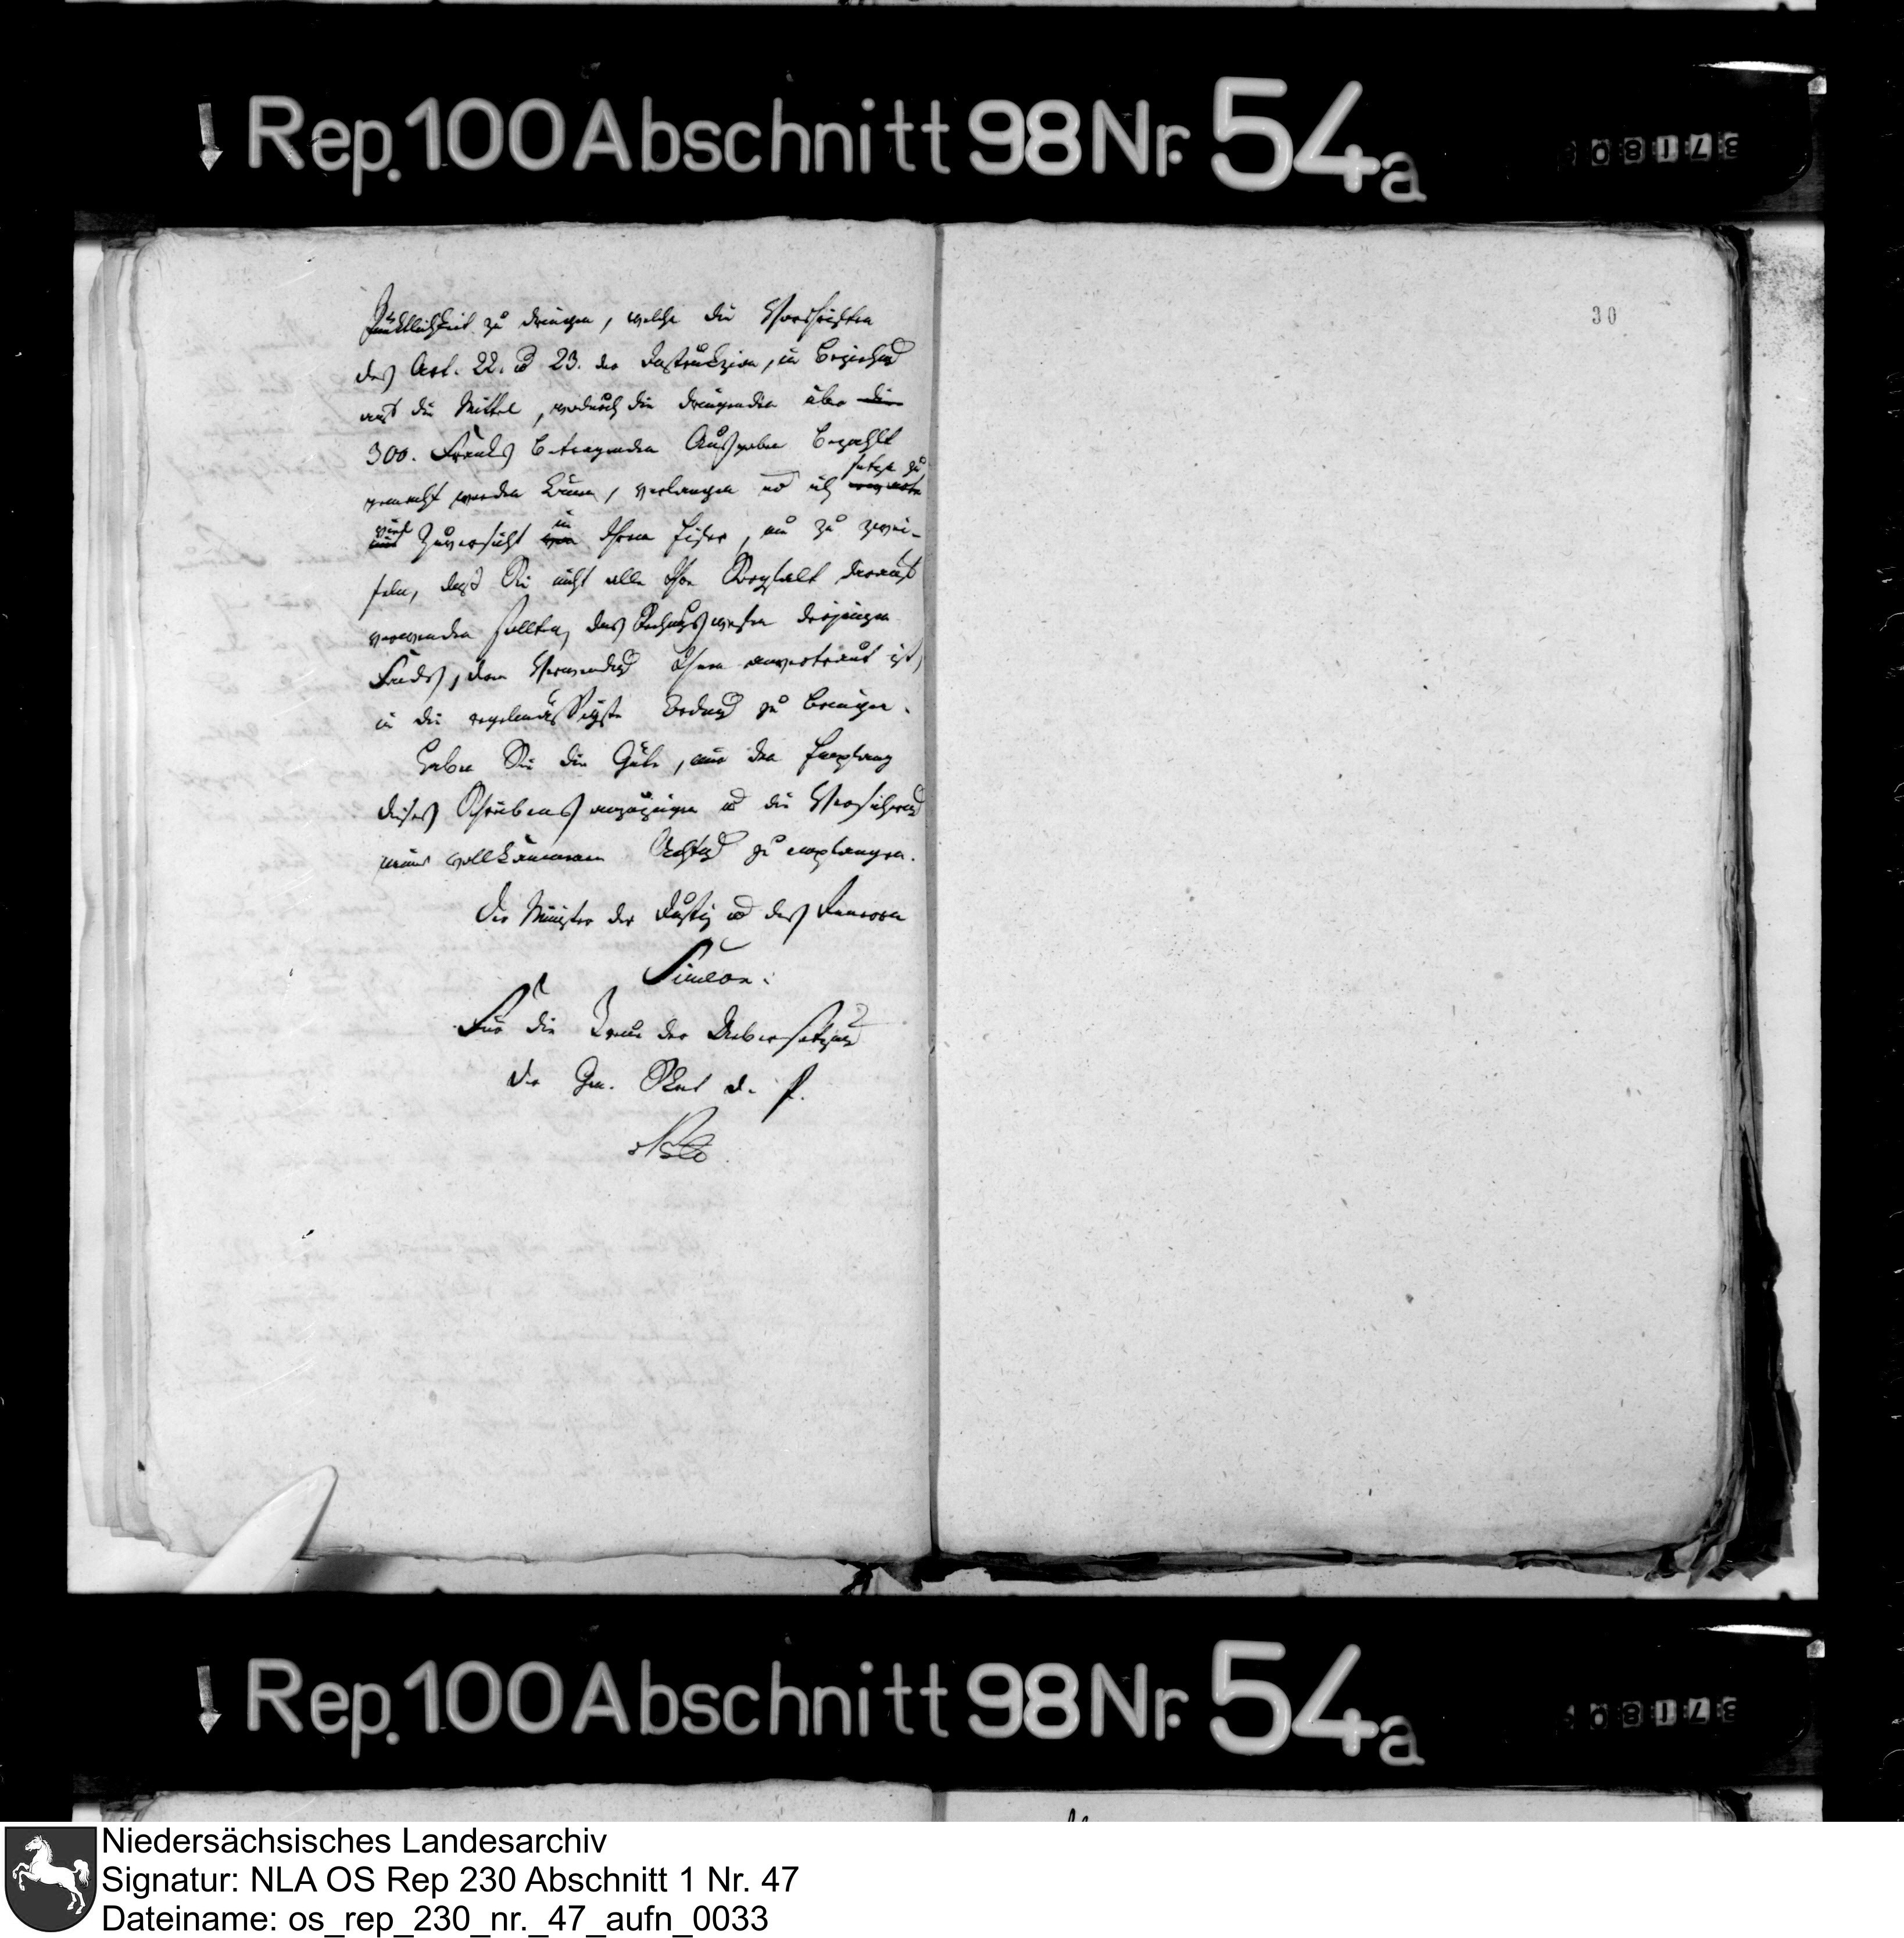 Rep. 100 Abschnitt 98 Nr. 54a
30
Pünktlichkeit zu dringen, welche die Vorschriften
des Art. 22. u 23. der Instrukzion, in Beziehung
auf die Mittel, wodurch die dringenden über die
300. Franks betragenden Ausgaben bezahlt
gemacht werden können, verlangen und ich setze zu
viel Zuversicht in Ihren Eifer, um zu zwei-
feln, daß Sie nicht alle Ihre Sorgfalt darauf
verwenden sollten, das Rechnungswesen desjenigen
Fonds, dessen Verwendung Ihnen anvertraut ist,
in die regelmäßigste Ordnung zu bringen.
Haben Sie die Güte, mir den Empfang
dieses Schreibens anzuzeigen u die Versicherung
meiner vollkommenen Achtung zu empfangen.
Der Minister der Justiz u des Inneren
Simeon.
Für die Treue der Uebersetzung
Der Gen. Sekret. d. P.
Rep. 100 Abschnitt 98 Nr. 54a
Niedersächsisches Landesarchiv
Signatur: NLA OS Rep 230 Abschnitt 1 Nr. 47
Dateiname: os_rep_230_nr._47_aufn_0033